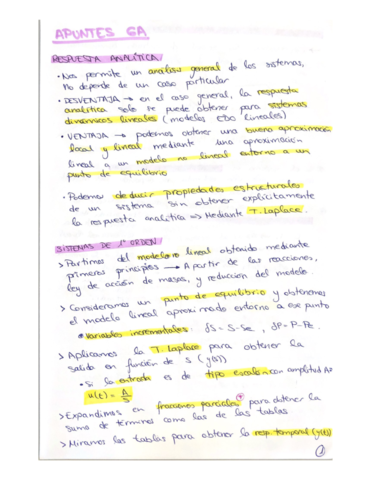 APUNTES 6A
RESPUESTA ANALÍTICA:
• Nos permite un análisis general de los sistemas,
No depende de un caso particular
• DESVENTAJA → en el caso general, la respuesta
analítica solo se puede obtener para sistemas
dinámicos lineales (modelos EDO lineales)
• VENTAJA → podemos obtener una buena aproximación
local y lineal mediante una aproximación
lineal a un modelo no lineal entorno a un
punto de equilibrio
• Podemos deducir propiedades estructurales
de un sistema sin obtener explícitamente
la respuesta analítica => Mediante T. Laplace.
SISTEMAS DE 1º ORDEN
> Partimos del modelo no lineal obtenido mediante
primeros principios → A partir de las reacciones,
ley de acción de masas, y reducción del modelo.
> Consideramos un punto de equilibrio y obtenemos
el modelo lineal aproximado entorno a ese punto
Variables incrementales: δS = S - Se, δP = P - Pe.
> Aplicamos la T. Laplace para obtener la
salida en función de s (y(s))
• Si la entrada es de tipo escalón con amplitud A=
u(t) = A/s
> Expandimos en fracciones parciales para obtener la
suma de términos como las de las tablas
> Miramos las tablas para obtener la resp. temporal (y(t))
1